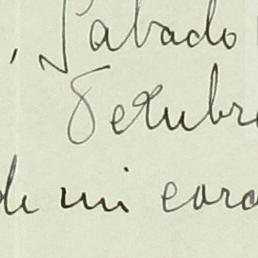 , Sabado
Octubr
de mi cora